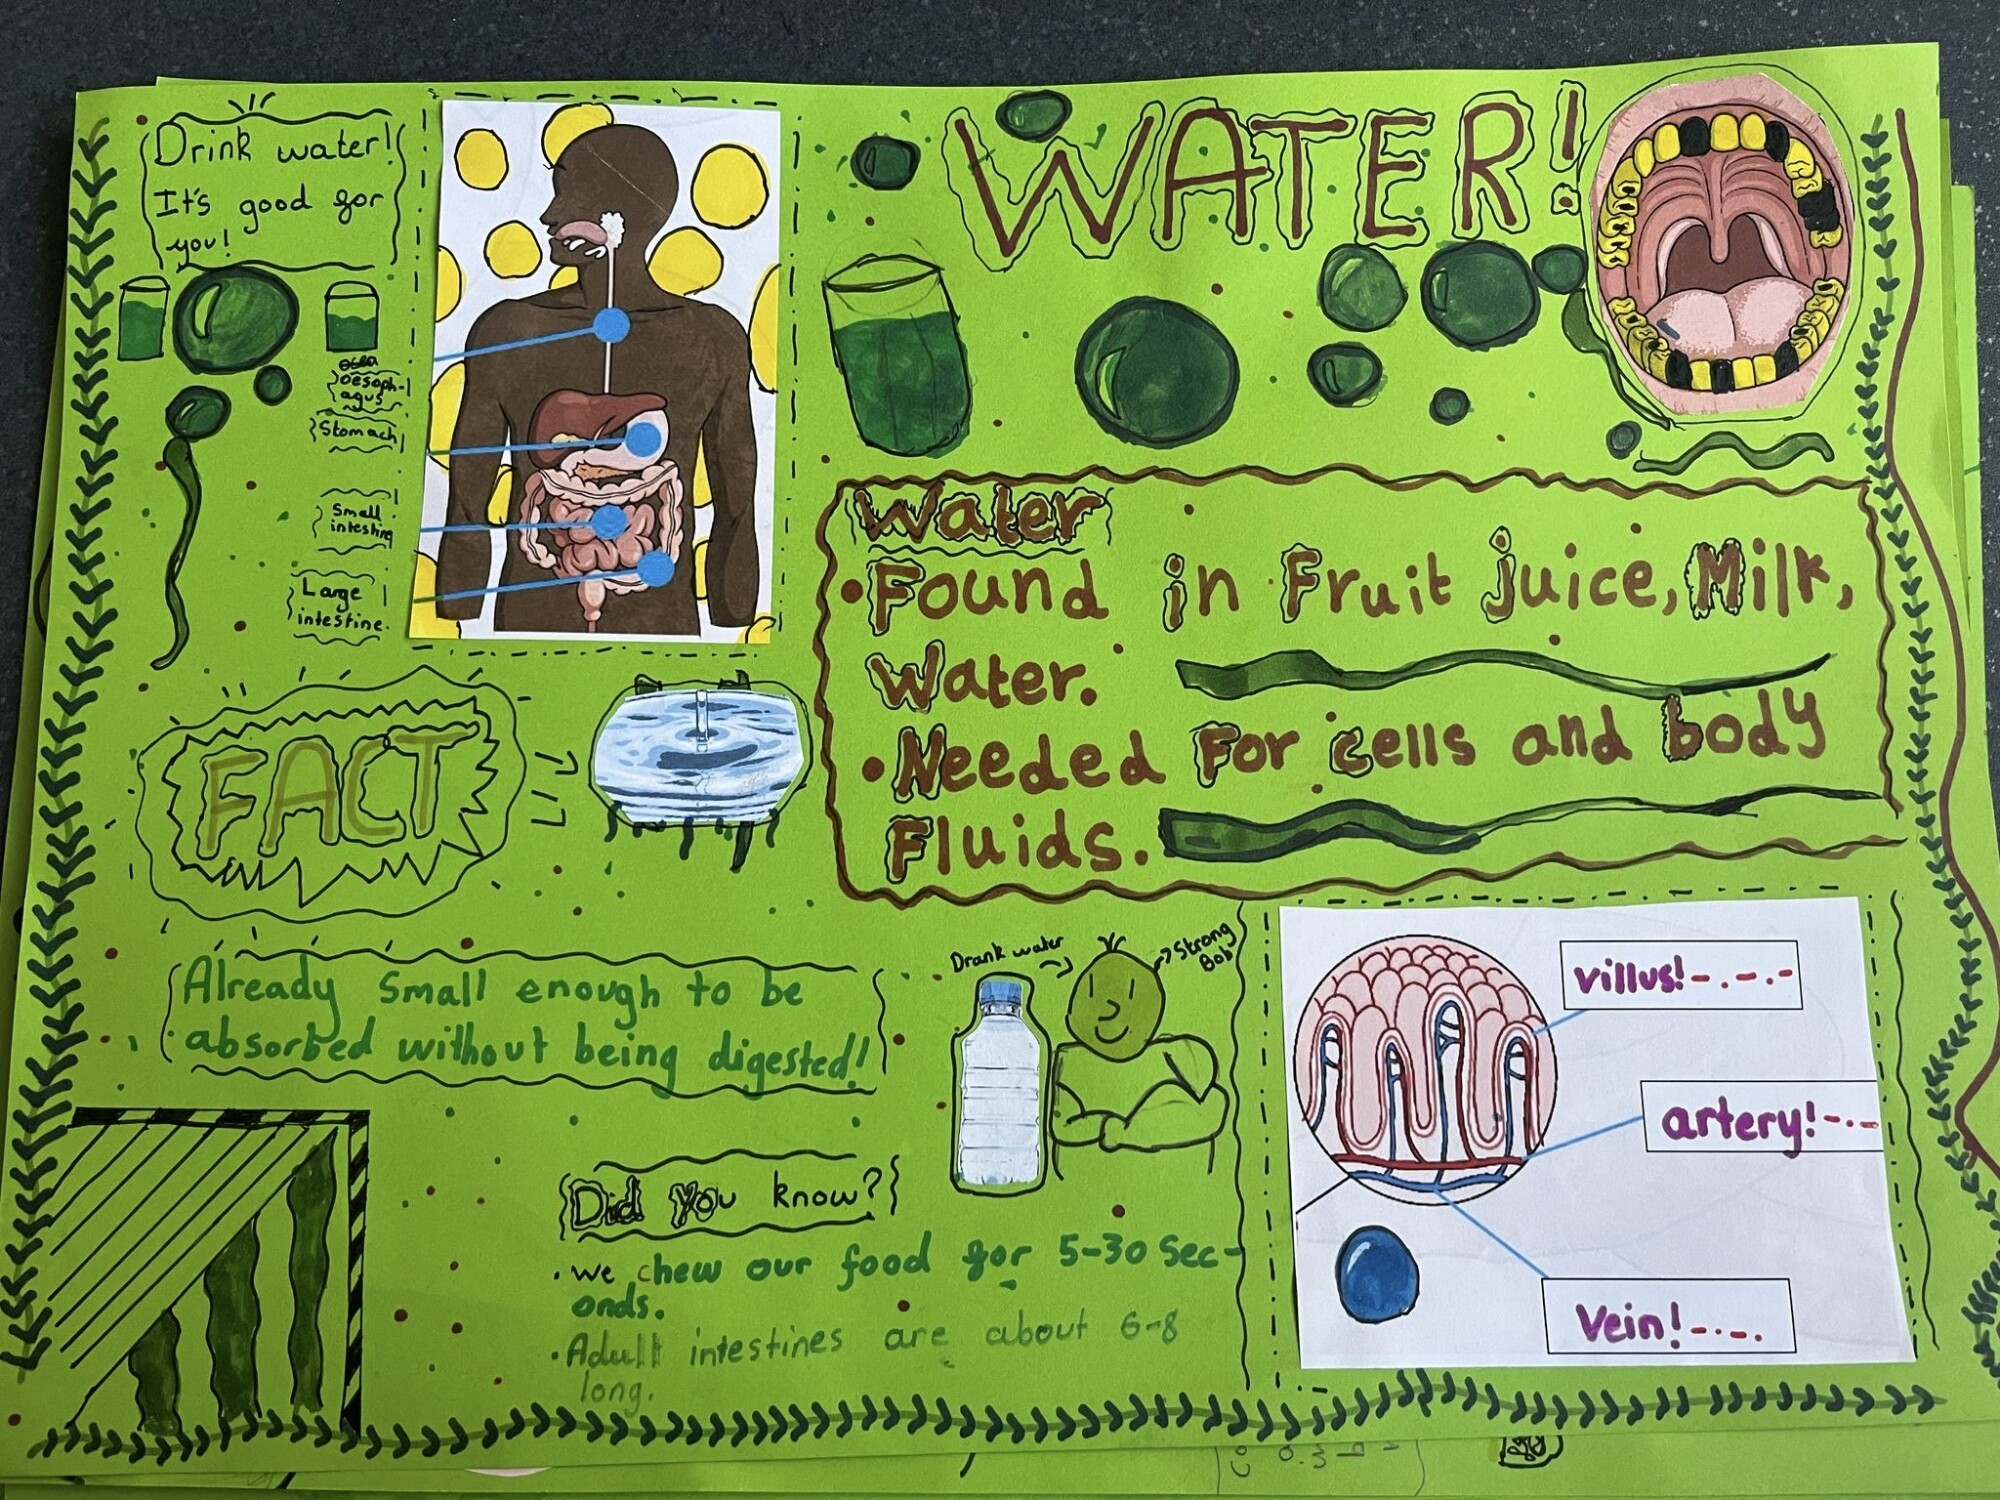 Drink water!
It's good for
you!
WATER!
oesoph-
agus
Stomach
Small
intestine
Large
intestine.
Water
• Found in Fruit juice, Milk,
Water.
• Needed For cells and body
Fluids.
FACT
Already small enough to be
absorbed without being digested!
Drank water
Strong
Bob
Did you know?
• We chew our food for 5-30 Sec-
onds.
• Adult intestines are about 6-8
long.
villus!
artery!
Vein!